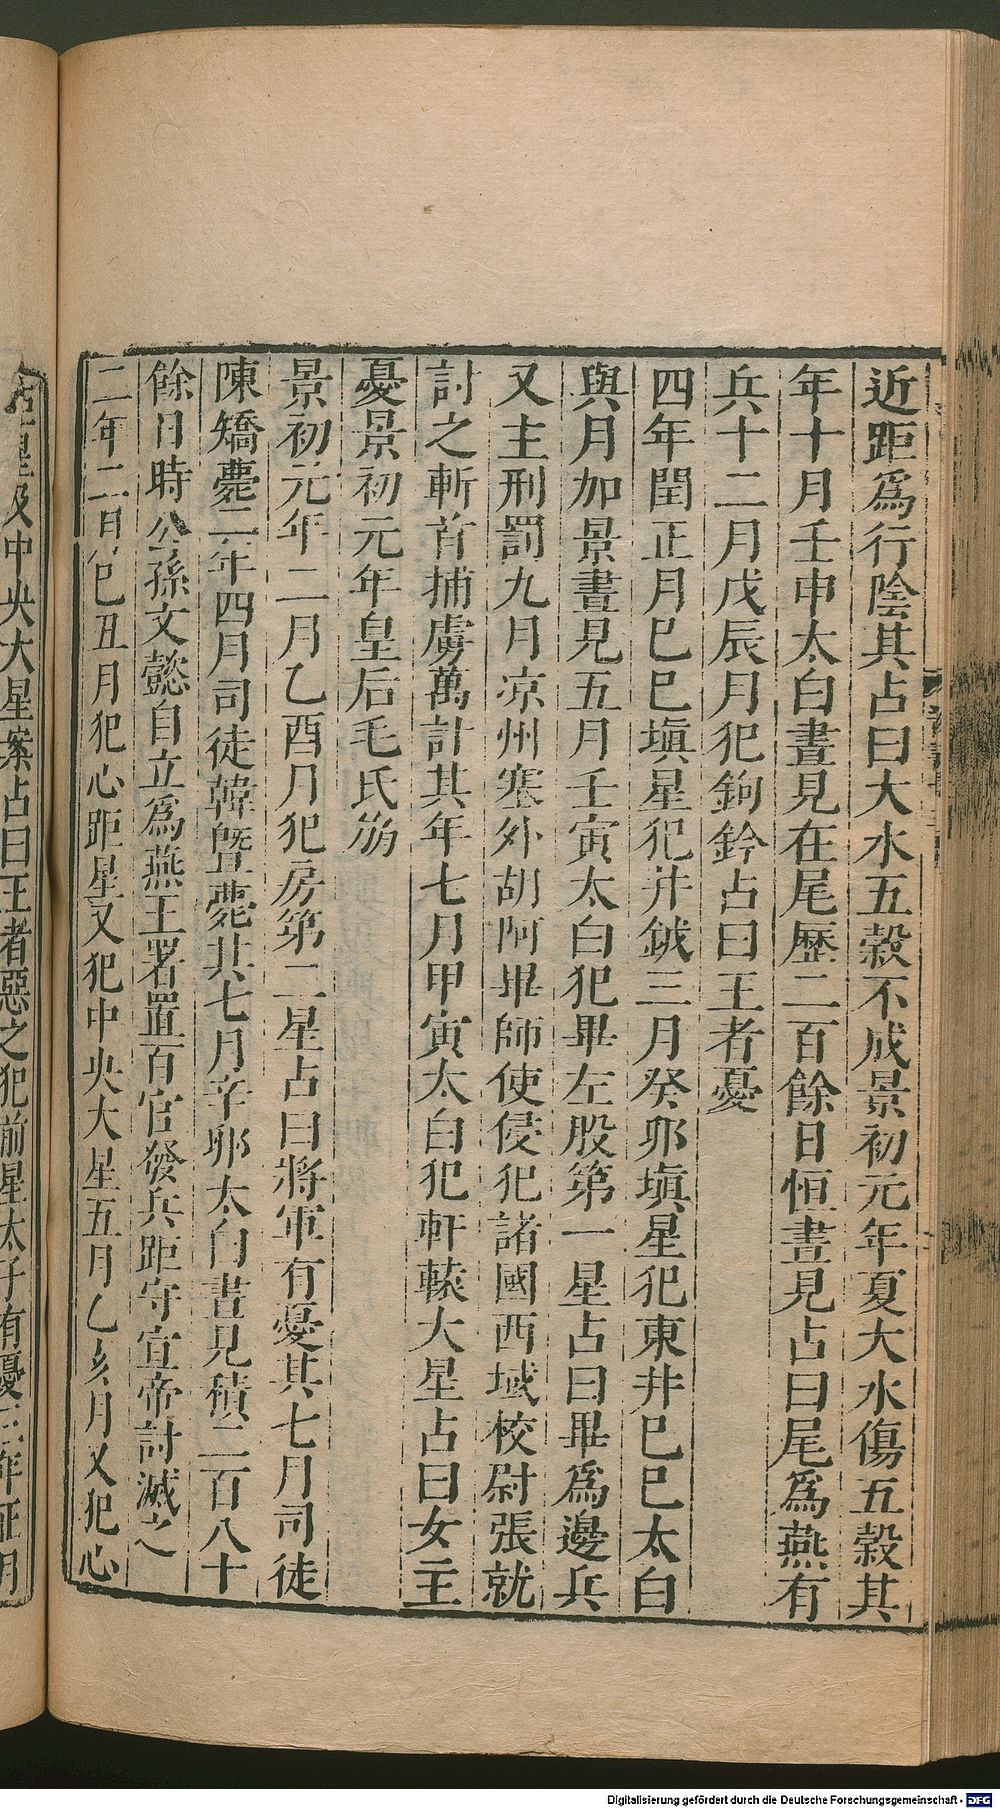 近距爲行陰其占曰大水五穀不成景初元年夏大水傷五穀其
年十月壬申太白晝見在尾歷二百餘日恒晝見占曰尾爲燕有
兵十二月戊辰月犯鉤鈐占曰王者憂
四年閏正月巳巳塡星犯井鉞三月癸卯塡星犯東井巳巳太白
與月加景晝見五月壬寅太白犯畢左股第一星占曰畢爲邊兵
又主刑罰九月凉州塞外胡阿畢師使侵犯諸國西域校尉張就
討之斬首捕虜萬計其年七月甲寅太白犯軒轅大星占曰女主
憂景初元年皇后毛氏崩
景初元年二月乙酉月犯房第二星占曰將軍有憂其七月司徒
陳矯薨二年四月司徒韓曁薨其七月辛卯太白晝見積二百八十
餘日時公孫文懿自立爲燕王署置百官發兵距守宣帝討滅之
二年二月巳丑月犯心距星又犯中央大星五月乙亥月又犯心
距星及中央大星案占曰王者惡之犯前星太子有憂三年正月
Digitalisierung gefördert durch die Deutsche Forschungsgemeinschaft - DFG